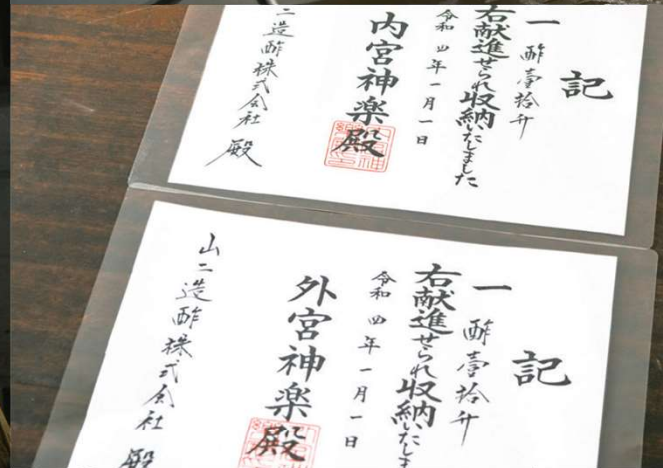 記
一 酢壹拾升
右献進せられ収納いたしました
令和四年一月一日
内宮神楽殿
二造酢株式会社 殿
記
一 酢壹拾升
右献進せられ収納いたしま
令和四年一月一日
外宮神楽殿
山二造酢株式会社 殿